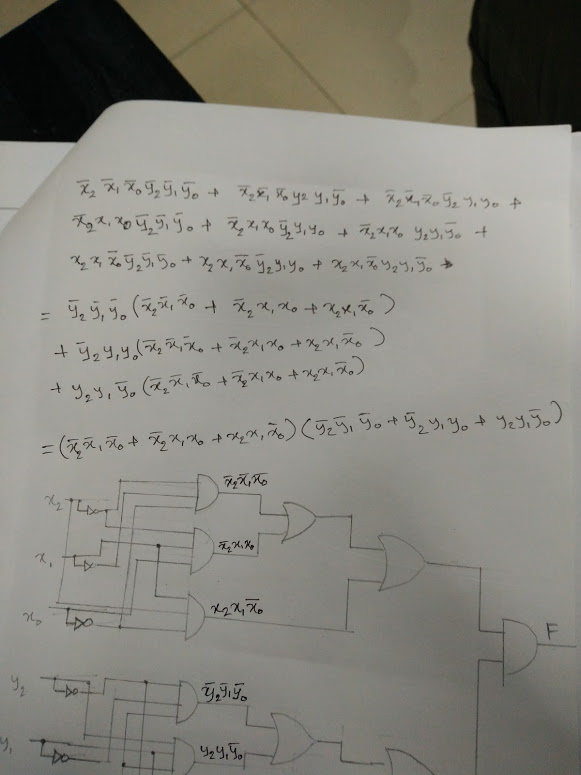 x̄₂ x̄₁ x̄₀ ȳ₂ ȳ₁ ȳ₀ + x̄₂ x̄₁ x̄₀ y₂ y₁ ȳ₀ + x̄₂ x̄₁ x̄₀ ȳ₂ y₁ y₀ +
x̄₂ x₁ x₀ ȳ₂ ȳ₁ ȳ₀ + x̄₂ x₁ x₀ ȳ₂ y₁ y₀ + x̄₂ x₁ x₀ y₂ y₁ ȳ₀ +
x₂ x₁ x̄₀ ȳ₂ ȳ₁ ȳ₀ + x₂ x₁ x̄₀ ȳ₂ y₁ y₀ + x₂ x₁ x̄₀ y₂ y₁ ȳ₀
= ȳ₂ ȳ₁ ȳ₀ (x̄₂ x̄₁ x̄₀ + x̄₂ x₁ x₀ + x₂ x₁ x̄₀)
+ ȳ₂ y₁ y₀ (x̄₂ x̄₁ x̄₀ + x̄₂ x₁ x₀ + x₂ x₁ x̄₀)
+ y₂ y₁ ȳ₀ (x̄₂ x̄₁ x̄₀ + x̄₂ x₁ x₀ + x₂ x₁ x̄₀)
= (x̄₂ x̄₁ x̄₀ + x̄₂ x₁ x₀ + x₂ x₁ x̄₀) (ȳ₂ ȳ₁ ȳ₀ + ȳ₂ y₁ y₀ + y₂ y₁ ȳ₀)
x̄₂ x̄₁ x̄₀
x₂
x̄₂ x₁ x₀
x₁
x₂ x₁ x̄₀
x₀
F
y₂
ȳ₂ ȳ₁ ȳ₀
y₁
y₂ y₁ ȳ₀